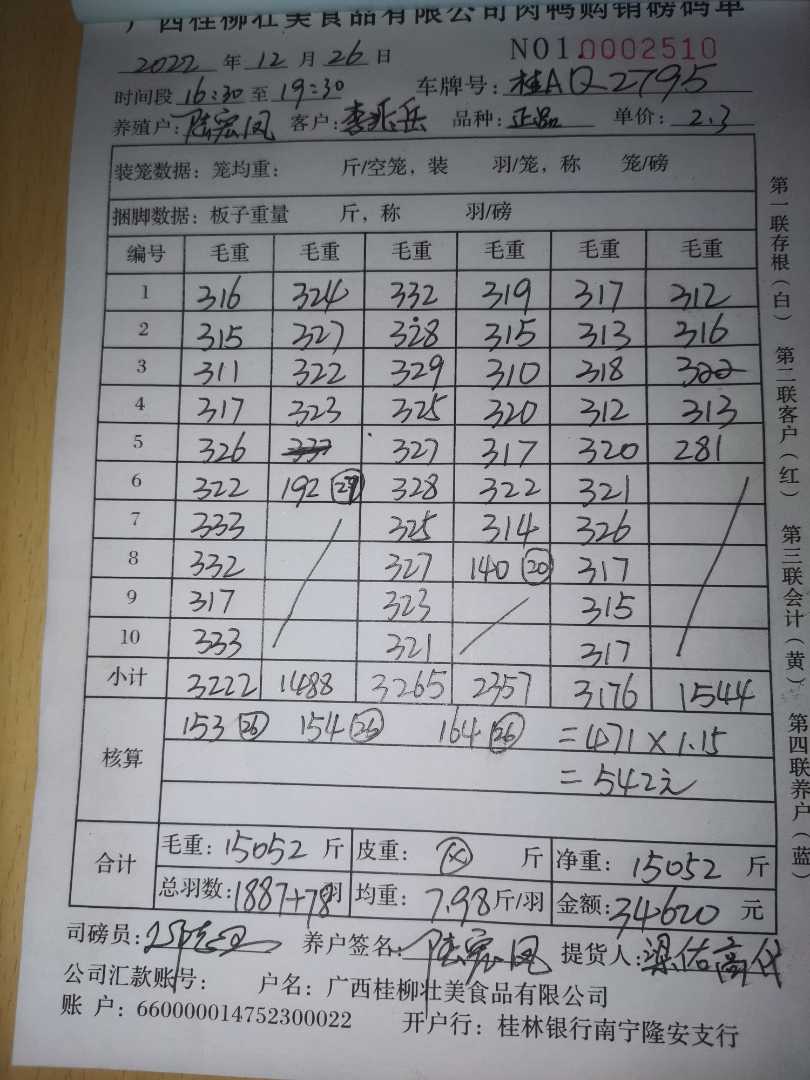 广西桂柳壮美食品有限公司肉鸭购销磅码单
2022 年 12 月 26 日 NO1.0002510
时间段 16:30 至 19:30 车牌号: 桂AQ2795
养殖户: 陆宏凤 客户: 李兆岳 品种: 正品 单价: 2.3
装笼数据: 笼均重: 斤/空笼, 装 羽/笼, 称 笼/磅
捆脚数据: 板子重量 斤, 称 羽/磅
编号 毛重 毛重 毛重 毛重 毛重 毛重
1 316 324 332 319 317 312
2 315 327 328 315 313 316
3 311 322 329 310 318 322
4 317 323 325 320 312 313
5 326 333 327 317 320 281
6 322 192 (27) 328 322 321
7 333 325 314 326
8 332 327 140 (20) 317
9 317 323 315
10 333 321 317
小计 3222 1488 3265 2357 3176 1544
核算 153 (26) 154 (26) 164 (26) =471×1.15
=542元
合计 毛重: 15052 斤 皮重: (×) 斤 净重: 15052 斤
总羽数: 1887+78羽 均重: 7.98斤/羽 金额: 34620 元
司磅员: 养户签名: 陆宏凤 提货人: 梁佑高
公司汇款账号: 户名: 广西桂柳壮美食品有限公司
账 户: 660000014752300022 开户行: 桂林银行南宁隆安支行
第一联存根(白) 第二联客户(红) 第三联会计(黄) 第四联养户(蓝)